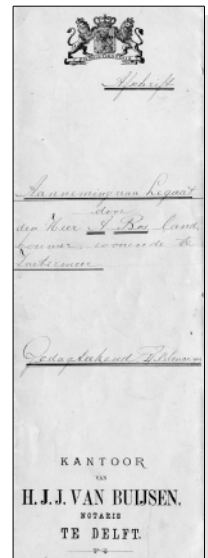 Afschrift
Aanneming van Legaat
door
den Heer A. Bos, land-
bouwer, wonende te
Zoetermeer
Gedagtekend
KANTOOR
VAN
H.J.J. VAN BUIJSEN.
NOTARIS
TE DELFT.